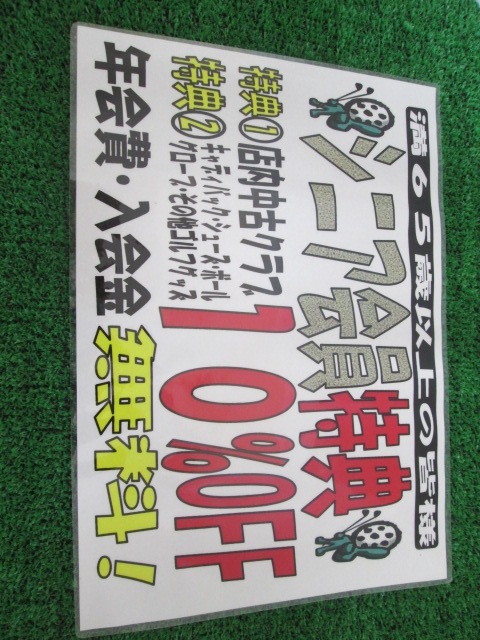 満65歳以上の皆様
シニア会員特典
特典①店内中古クラブ
特典②キャディバック・シューズ・ボール
グローブ・その他ゴルフグッズ
10%OFF
年会費・入会金無料!